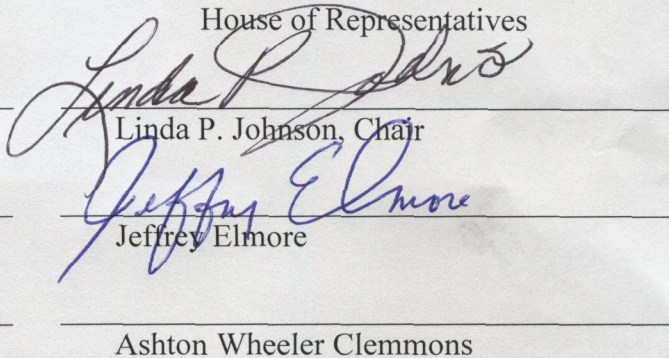 House of Representatives
Linda P Johnson
Linda P. Johnson, Chair
Jeffrey Elmore
Jeffrey Elmore
Ashton Wheeler Clemmons